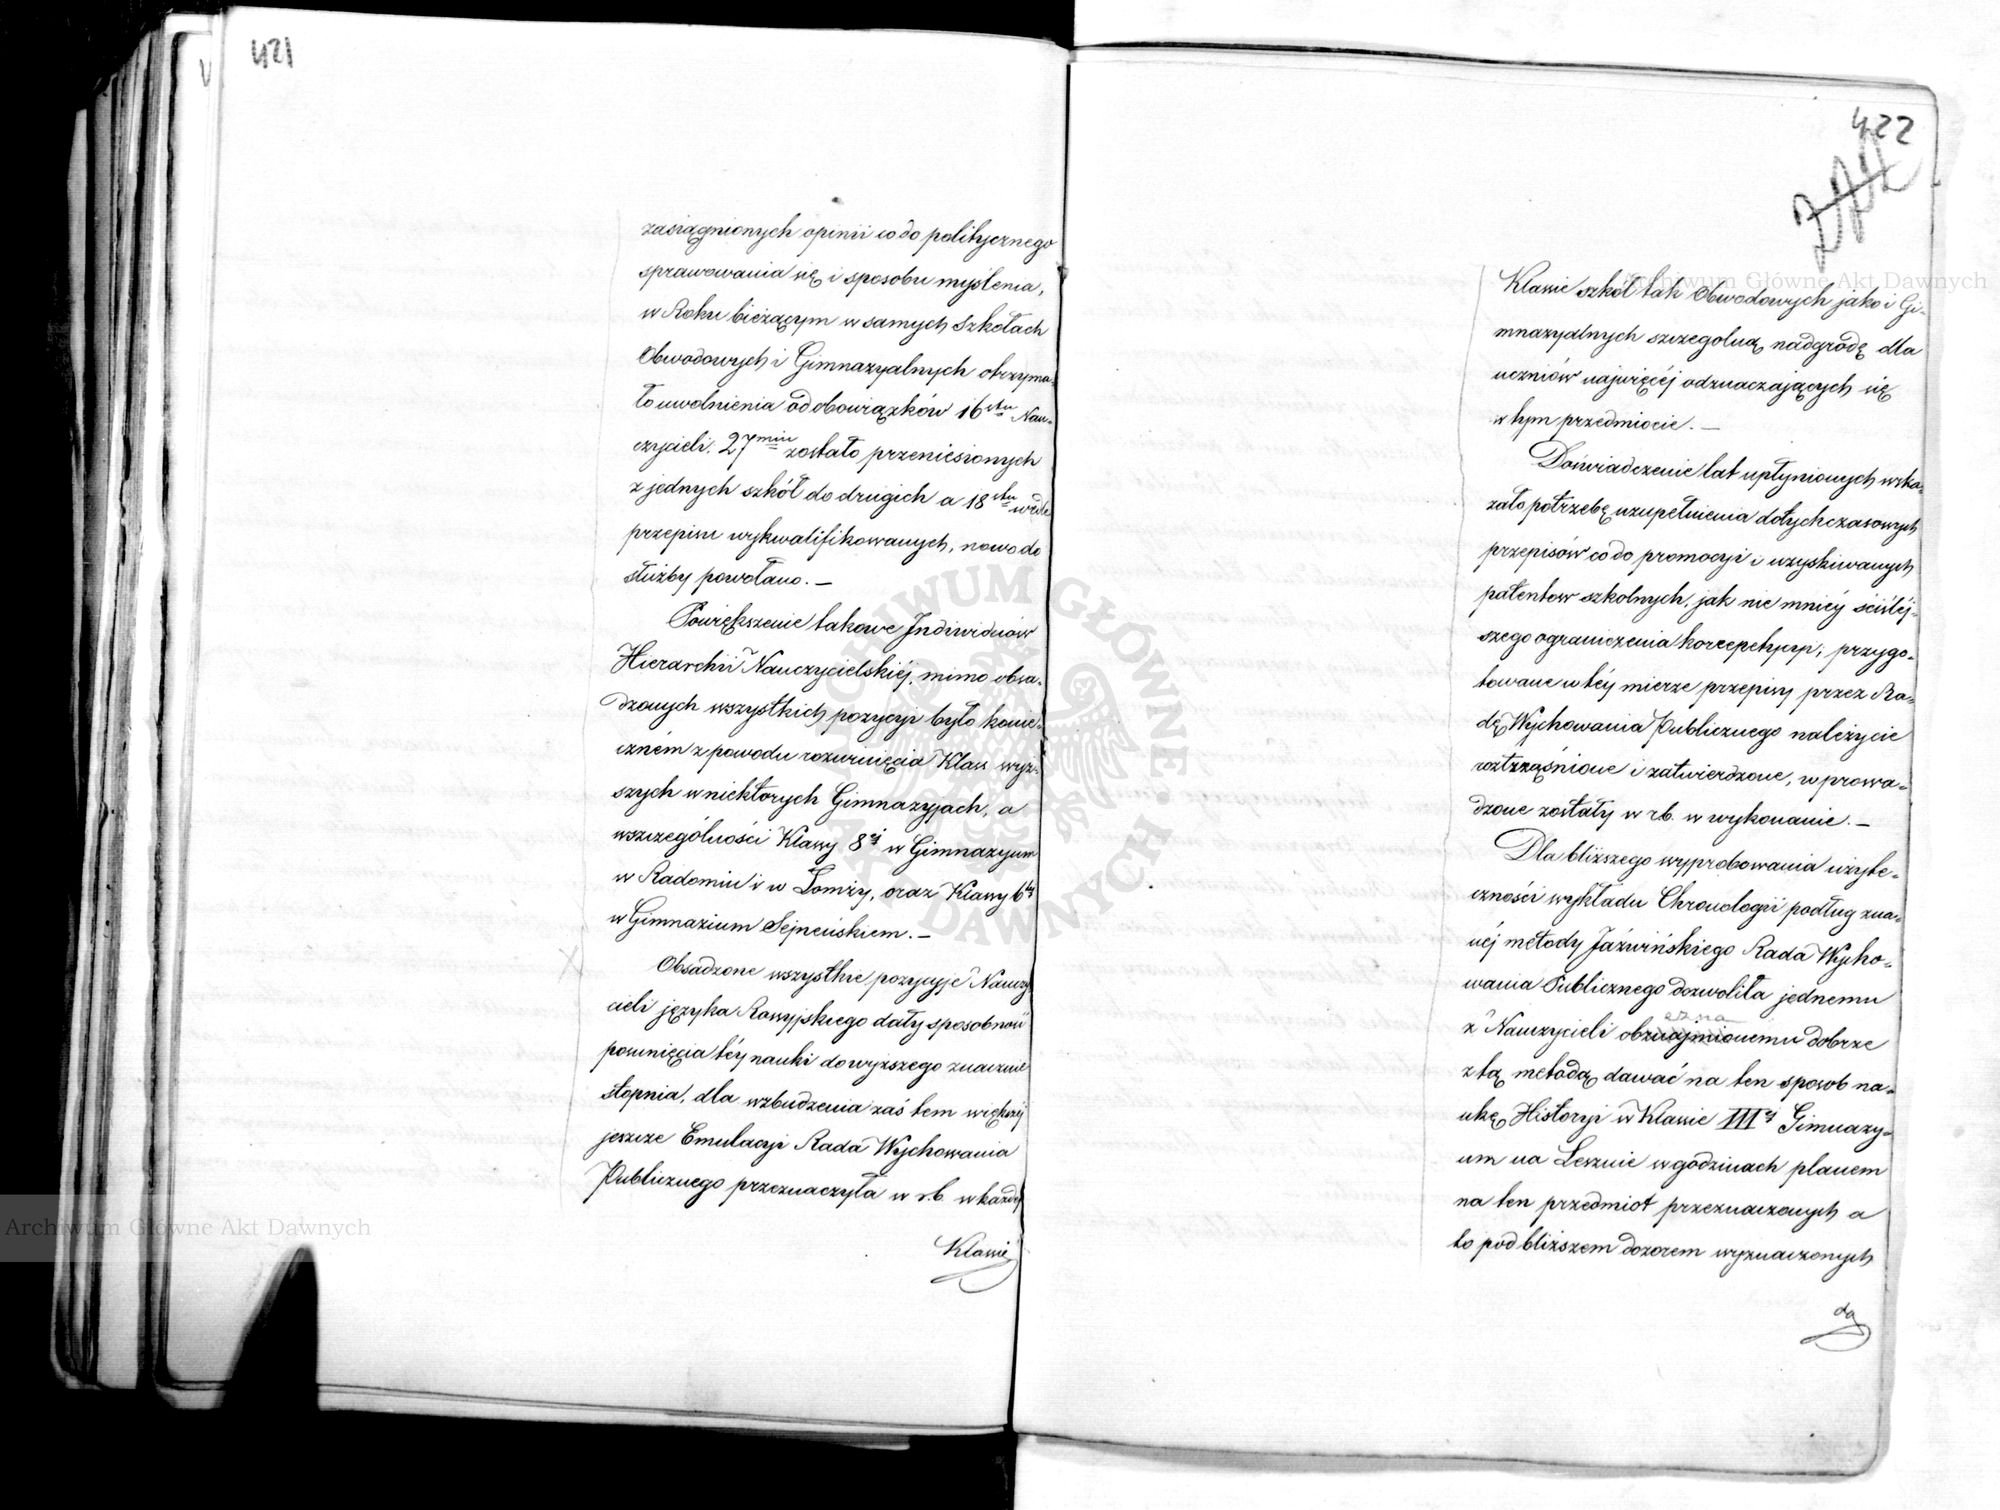 421
zasiągnionych opinii co do politycznego
sprawowania się i sposobu myślenia,
w Roku bieżącym w samych Szkołach
Obwodowych i Gimnazyalnych otrzyma-
ło uwolnienia od obowiązków 16stu Nau-
czycieli. 27miu zostało przeniesionych
z jednych szkół do drugich a 18stu wedle
przepisu wykwalifikowanych, nowo do
służby powołano. —
Powiększenie takowe Indiwiduów
Hierarchii Nauczycielskiéj, mimo obsa-
dzonych wszystkich pozycyi było konie-
czném z powodu rozwinięcia Klass wyż-
szych w niektorych Gimnazyjach, a
w szczególności Klassy 8éj w Gimnazyum
w Radomiu i w Łomży, oraz Klassy 6téj
w Gimnazium Sejneńskiem. —
Obsadzone wszystkie pozycyje Nauczy-
cieli języka Rossyjskiego dały sposobność
posunięcia téy nauki do wyższego znacznie
stopnia, dla wzbudzenia zaś tem większéj
jeszcze Emulacyi Rada Wychowania
Publicznego przeznaczyła w r.b. w każdéj
Klassie
422
Klassie szkół tak Obwodowych jako i Gi-
mnazyalnych szczegolną nadgrodę dla
uczniów najwięcéj odznaczających się
w tym przedmiocie. —
Doświadczenie lat upłynionych wska-
zało potrzebę uzupełnienia dotychczasowych
przepisów co do promocyi i uzyskiwanych
patentow szkolnych, jak nie mniéy ściśléj-
szego ograniczenia korrepetycyi, przygo-
towane w téy mierze przepisy przez Ra-
dę Wychowania Publicznego należycie
roztrząśnione i zatwierdzone, wprowa-
dzone zostały w r.b. w wykonanie. —
Dla bliższego wyprobowania użyte-
czności wykładu Chronologii podług zna-
néj metody Jaźwińskiego Rada Wycho-
wania Publicznego dozwoliła jednemu
z Nauczycieli obznajmionemu dobrze
z tą metodą dawać na ten sposob na-
ukę Historyi w Klassie IIIéj Gimnazy-
um na Lesznie w godzinach planem
na ten przedmiot przeznaczonych a
to pod bliższem dozorem wyznaczonych
do
Archiwum Główne Akt Dawnych
Archiwum Główne Akt Dawnych
ARCHIWUM GŁÓWNE • AKT DAWNYCH •